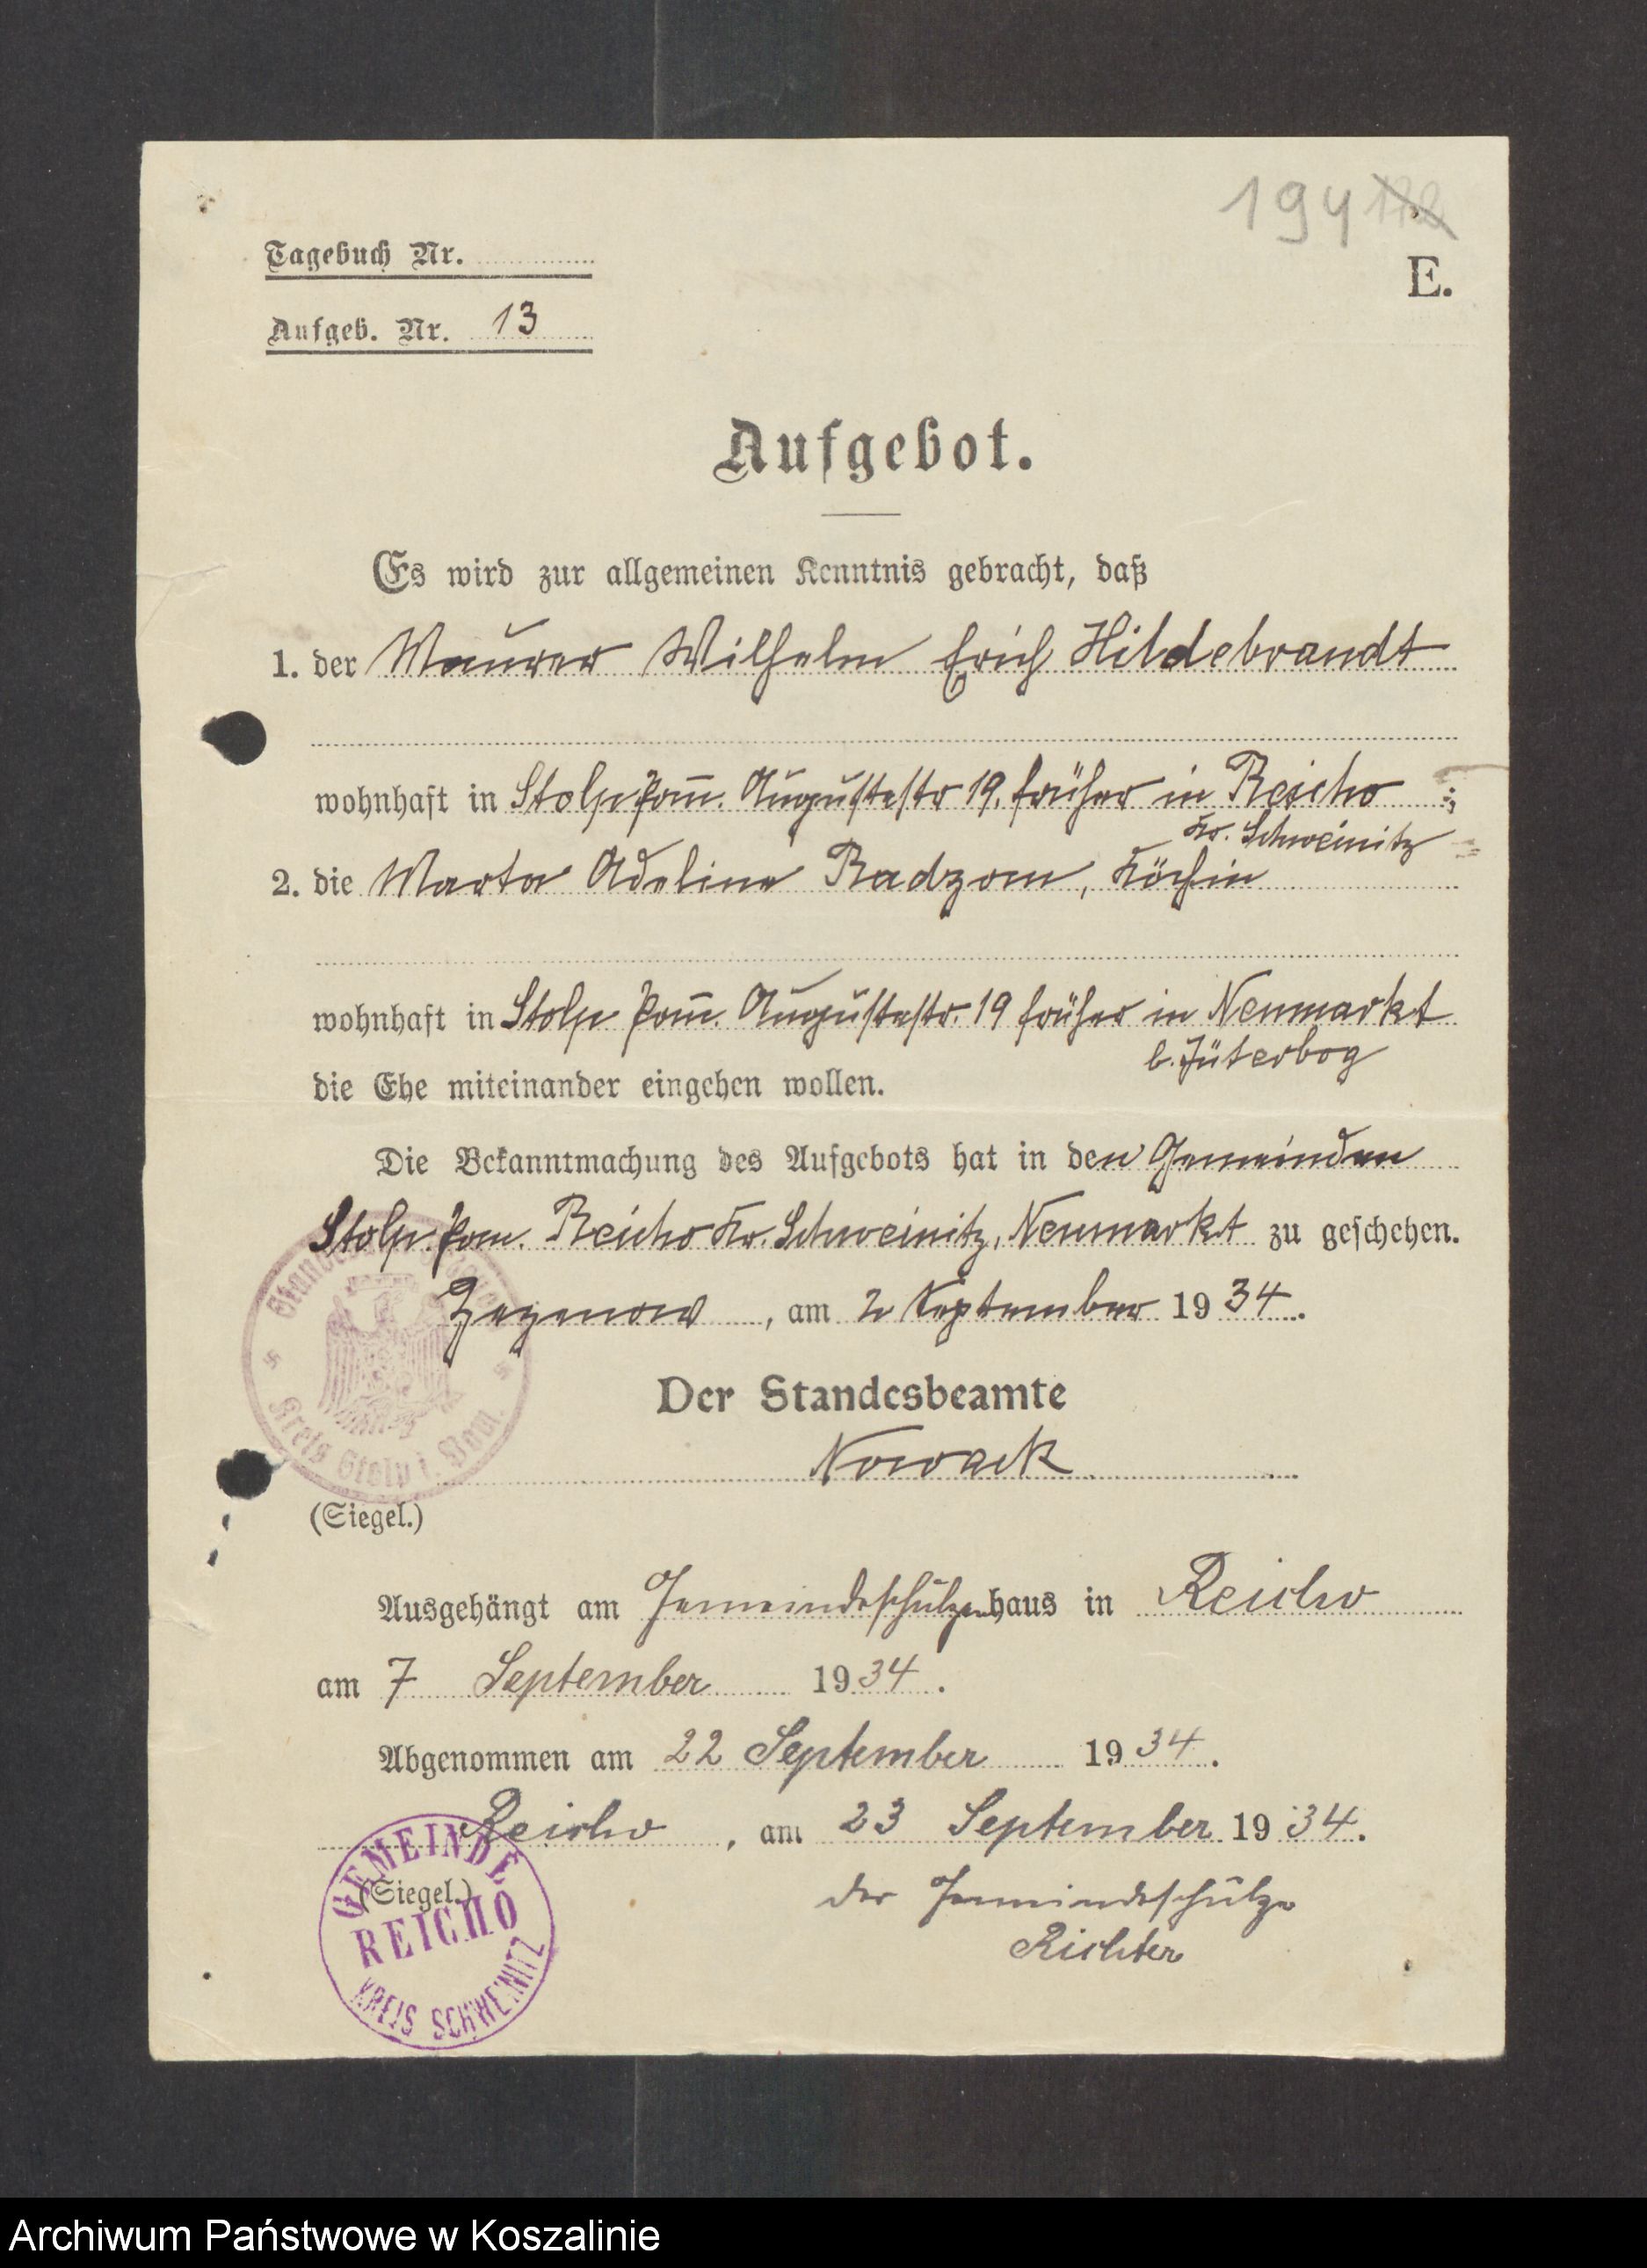 194 112
E.
Tagebuch Nr.
Aufgeb. Nr. 13
Aufgebot.
Es wird zur allgemeinen Kenntnis gebracht, daß
1. der Maurer Wilhelm Erich Hildebrandt
wohnhaft in Stolp Pom̅. Augustastr 19, früher in Reicho ;
Kr. Schweinitz
2. die Marta Adeline Radzom, Köchin
wohnhaft in Stolp Pom̅. Augustastr. 19 früher in Neumarkt
b. Jüterbog
die Ehe miteinander eingehen wollen.
Die Bekanntmachung des Aufgebots hat in den Gemeinden
Stolp. Pom. Reicho Kr. Schweinitz, Neumarkt zu geschehen.
Zezenow, am 2 September 1934.
Der Standesbeamte
Nowack
Kreis Stolp i. Pom.
(Siegel.)
Ausgehängt am Gemeindeschulzenhaus in Reicho
am 7 September 1934.
Abgenommen am 22 September 1934.
Reicho, am 23 September 1934.
(Siegel.)
GEMEINDE
REICHO
KREIS SCHWEINITZ
der Gemeindeschulze
Richter
Archiwum Państwowe w Koszalinie